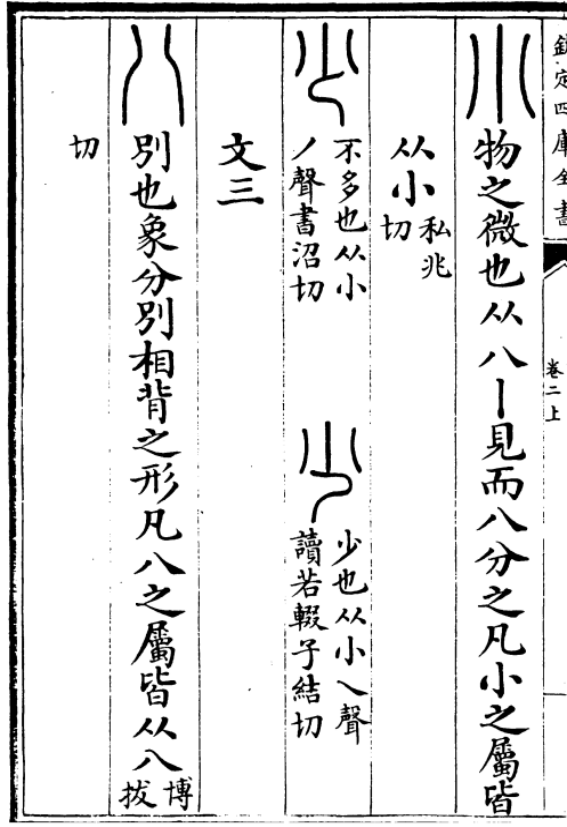 欽定四庫全書 卷二上
小 物之微也从八丨見而八分之凡小之屬皆
从小私兆切
少 不多也从小丿聲書沼切 𡮐 少也从小乀聲讀若輟子結切
文三
八 別也象分別相背之形凡八之屬皆从八博拔
切